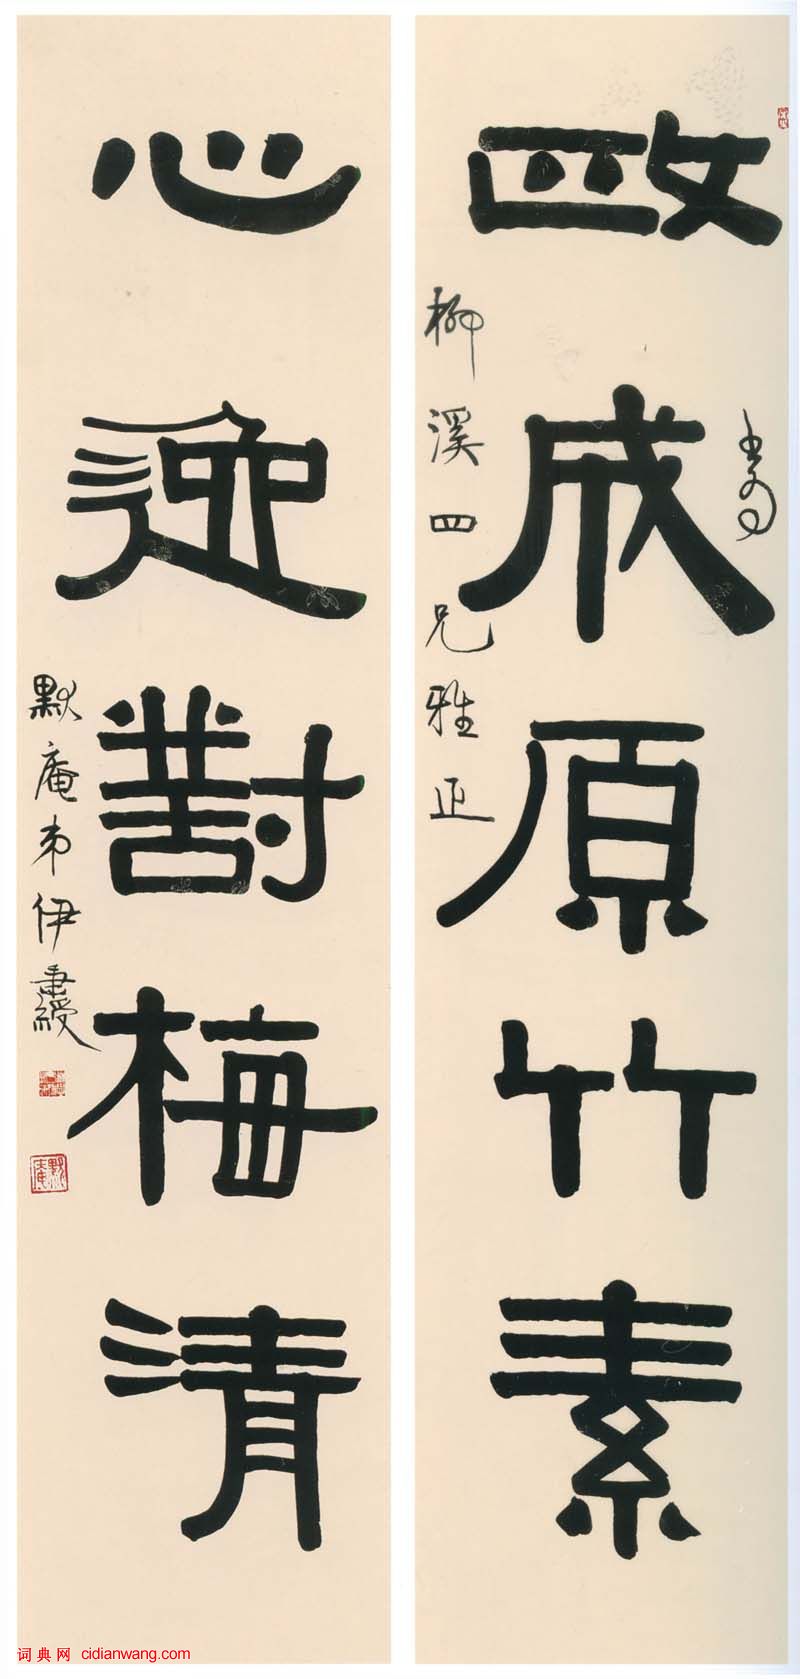 政成原竹素
柳溪四兄雅正
心逸對梅清
默庵弟伊秉綬
默庵
词典网 cidianwang.com